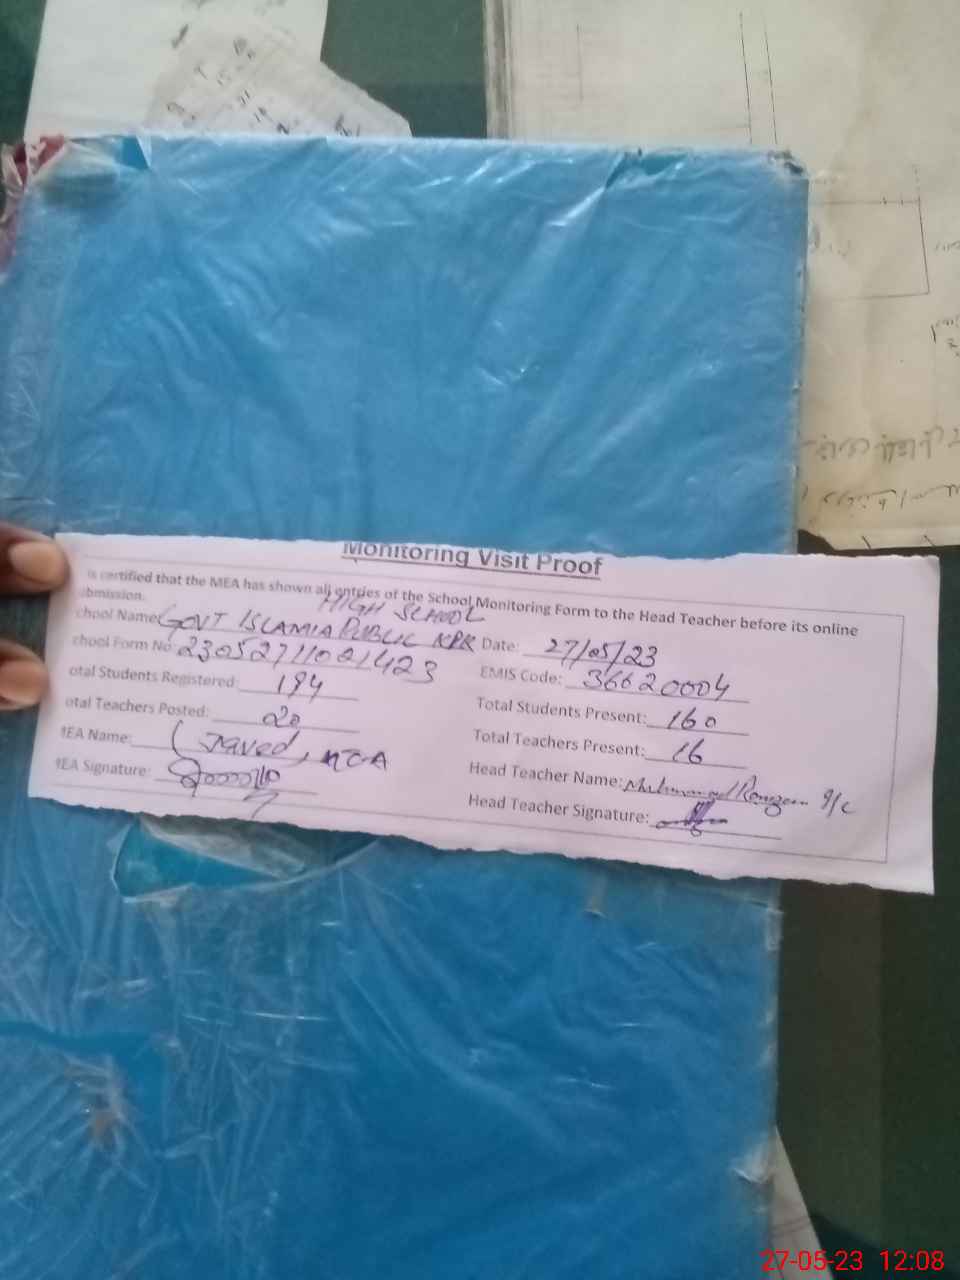 Monitoring Visit Proof
is certified that the MEA has shown all entries of the School Monitoring Form to the Head Teacher before its online
bmission.
HIGH SCHOOL
chool Name: GOVT ISLAMIA PUBLIC KPR Date: 27/05/23
chool Form No: 23052711021423 EMIS Code: 36620004
otal Students Registered: 194 Total Students Present: 160
otal Teachers Posted: 20 Total Teachers Present: 16
MEA Name: Javed, MEA Head Teacher Name: Muhammad I/C
MEA Signature: Head Teacher Signature:
27-05-23 12:08